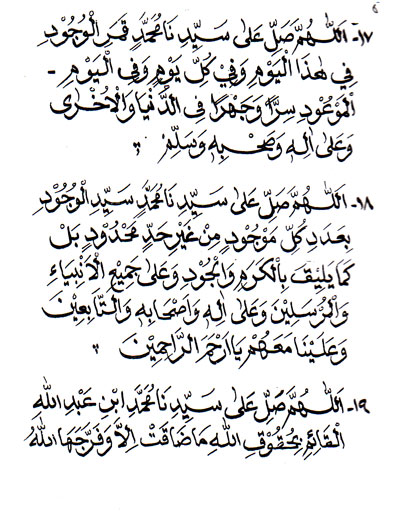 ٦
١٧- اَللّٰهُمَّ صَلِّ عَلٰى سَيِّدِنَا مُحَمَّدٍ قَمَرِ الْوُجُوْدِ
فِي هٰذَا الْيَوْمِ وَفِيْ كُلِّ يَوْمٍ وَفِي الْيَوْمِ -
الْمَوْعُوْدِ سِرًّا وَجَهْرًا فِى الدُّنْيَا وَالْاُخْرٰى
وَعَلٰى اٰلِهٖ وَصَحْبِهٖ وَسَلِّمْ
١٨- اَللّٰهُمَّ صَلِّ عَلٰى سَيِّدِنَا مُحَمَّدٍ سَيِّدِ الْوُجُوْدِ
بِعَدَدِ كُلِّ مَوْجُوْدٍ مِنْ غَيْرِ حَدٍّ مَحْدُوْدٍ بَلْ
كَمَا يَلِيْقُ بِالْكَرَمِ وَالْجُوْدِ وَعَلٰى جَمِيْعِ الْاَنْبِيَاءِ
وَالْمُرْسَلِيْنَ وَعَلٰى اٰلِهٖ وَاَصْحَابِهٖ وَالتَّابِعِيْنَ
وَعَلَيْنَا مَعَهُمْ يَا اَرْحَمَ الرَّاحِمِيْنَ
١٩- اَللّٰهُمَّ صَلِّ عَلٰى سَيِّدِنَا مُحَمَّدِ ابْنِ عَبْدِ اللهِ
الْقَائِمِ بِحُقُوْقِ اللهِ مَا ضَاقَتْ اِلَّا وَفَرَّجَهَا اللهُ